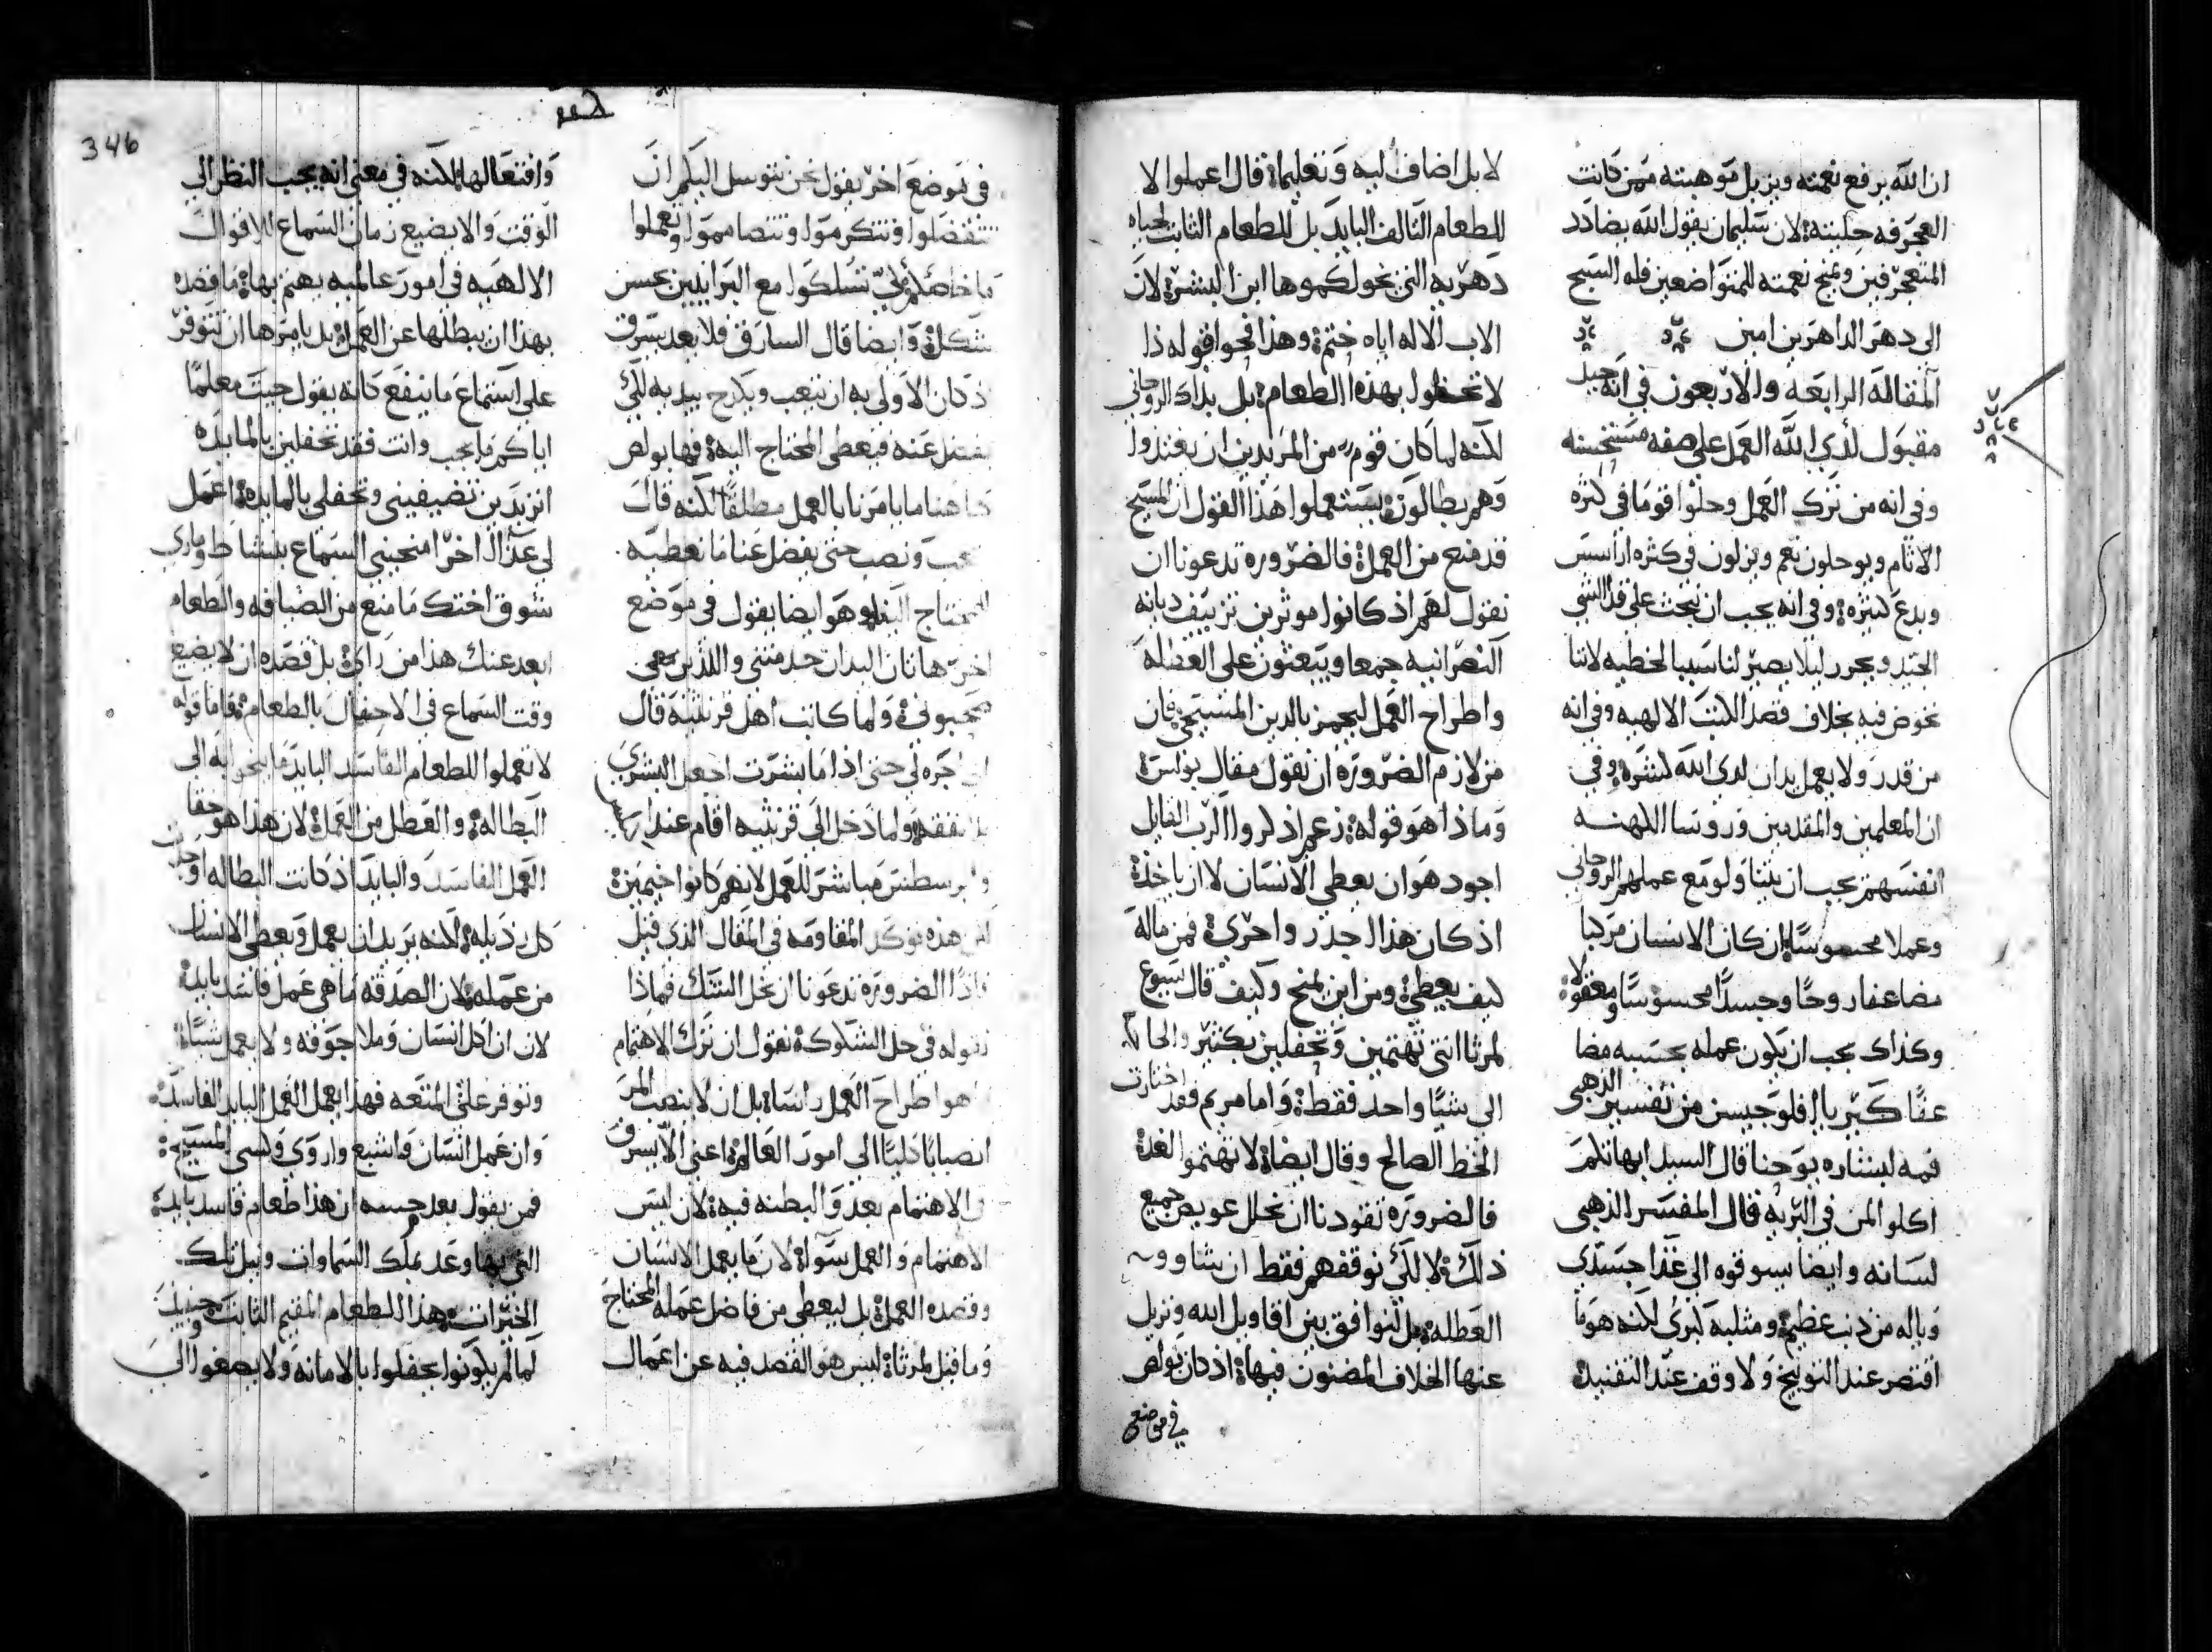 ان الله يرفع نعمته ويزيل موهبته ممن كانت
العجرفه حليته لان سليمان يقول الله يضادد
المتعجرفين ويمنح نعمته للمتواضعين فله السبح
الى دهر الداهرين امين
المقالة الرابعه والاربعون في انه جيد
مقبول لدى الله العمل على صفه مستحسنه
وفي انه من ترك العمل وحلوا قوما في كثره
الاثام ويوحلون نعم ويزلون في كثره اراسس
وبدع كثيره وفي انه يجب ان نبحث على قدر الشي
الجيد ويحرر ليلا يصير لنا سببا لخطيه لاننا
نخوض فيه بخلاف قصد الكتب الالهيه وفي انه
من قدر ولا يعمل يدان لدى الله كشره وفي
ان المعلمين والمقدمين وروسا الكهنه
انفسهم يجب ان يتناولو مع عملهم الروحاني
وعملا محسوسا ان كان الانسان مركبا
مضاعفا روحا وجسدا محسوسا ومعقولا
وكذاك يجب ان يكون عمله بحسبه مضا
عفا كيرياالافلوجيسن من تفسير الذهبي
فمه لبشاره يوحنا قال السيد ابهاتكم
اكلوا المن في البريه قال المفسر الذهبي
لسانه وايضا يسوقوه الى غذا جسدي
وياله من ذنب عظيم ومثلبه كبرى لكنه هو ما
اقتصر عند التوبيخ ولا وقف عند التفنيد
لا بل اضاف اليه وتعليما قال اعملوا لا
للطعام التالف البايد بل للطعام الثابت لحياه
دهريه التي يخولكموها ابن البشر لان
الاب الاله اياه ختم وهذا فحوا قوله ذا
لا تحفلو بهذا الطعام بل بذاك الروحاني
لكنه لما كان قوم من المريدين ان يغتذوا
وهم بطالون يستعملوا هذا القول ان المسيح
قد منع من العمل فالضروره تدعونا ان
نقول لهم اذ كانوا موثرين تزييف ديانه
النصرانيه جمعا ويبعثون على العطله
واطراح العمل ليجمز بالدين المسيحي فان
من لازم الضروره ان نقول مقال بولس
وماذا هو قوله زعم اذكروا الرب القايل
اجود هو ان يعطي الانسان لا ان ياخذ
اذ كان هذا اجدر واحرى فمن ماله
كيف يعطي ومن اين يمنح وكيف قال يسوع
لمرثا انتي تهتمين وتحفلين بكثير والحاجه
الى شيا واحد فقط واما مريم فقد اختارت
الحظ الصالح وقال ايضا لا تهتموا لغد
فالضروره تقودنا ان نحلل عويص جميع
ذلك لا لكي نوقفهم فقط ان يشاوو
العطله بل لنوافق بين اقاويل الله ونزيل
عنها الخلاف المضنون فيها اذ كان بولص
في موضع
346
في موضع اخر يقول نحن نتوسل اليكم ان
تتفضلوا وتتكرموا وتتصامموا وتعملوا
ما خاصكم لكي تسلكوا مع البرانيين بحسن
شكل وايضا قال السارق فلا يعد يسرق
اذ كان الاولى به ان يتعب ويكدح بيديه لكي
يفضل عنه فيعطي المحتاج اليه فهابولص
هاهنا ما يامرنا بالعمل مطلقا لكنه قال
بتعب ونصب حتى يفضل عنا ما نعطيه
للمحتاج الينا وهو ايضا يقول في موضع
اخر هاتان اليدان خدمتني والذين معي
ولما كانت اهل قرنثيه قال
اجره لي حتى اذا ما بشرت اجعل البشرى
بلا نفقه ولما دخل الى قرنثيه اقام عند
مباشر للعمل لانهم كانوا خيميين
لكن هذه توكد المقاومه في المقال الذي قيل
فاذا الضروره تدعونا ان نحل الشك فماذا
نقوله في حل الشكوك نقول ان ترك الاهتمام
هو اطراح العمل راسا بل ان لا ينصب المر
انصبابا كليا الى امور العالم اعني الا يسرف
والاهتمام بغد والبطنه فيه لان ليس
الاهتمام والعمل سوا لان ما يعمل الانسان
وقصده العمل بل ليعطي من فاضل عمله المحتاج
وما قيل لمرثا ليس هو القصد فيه عن اعمال
وافتعالها لكنه في معنى انه يجب النظر الى
الوقت والا يضيع زمان السماع للاقوال
الالهيه في امور عالميه يهتم بها ما قصده
بهذا ان يبطلها عن العمل بل يامرها ان تتوفر
على استماع ما ينفع كانه يقول جيت معلما
اياكم ما يجب وانت فقد تحفلين بالمايده
اتريدين تضيفيني وتحفلي بالمايده اعمل
لي غذا اخر امنحيني السماع بنشاط وماري
شوق اختك ما منع من الضيافه والطعام
ابعد عنك هذا من راي بل قصده ان لا يضيع
وقت السماع في الاحفال بالطعام فاما قوله
لا تعملوا للطعام الفاسد البايد ما ينحوا به الى
البطاله والعطل من العمل لان هذا هو حقا
العمل الفاسد والبايد اذ كانت البطاله اوجدت
كل رذيله لكنه يريد ان يعمل ويعطي الانسان
من عمله لان الصدقه ما هي عمل فاسد بايد
لان ان اكل انسان وملا جوفه ولا يعمل شيا
وتوفر على المتعه فهذا يعمل العمل البايد الفاسد
وان عمل انسان واشبع واروى وكسى المسيح
فمن يقول بعد حسه ان هذا طعام فاسد بايد
التي بها وعد بملك السماوات ونيل تلك
الخيرات هذا الطعام المقيم الثابت وحينيذ
لما لم يكونوا يحفلوا بالامانه ولا يصغوا الى